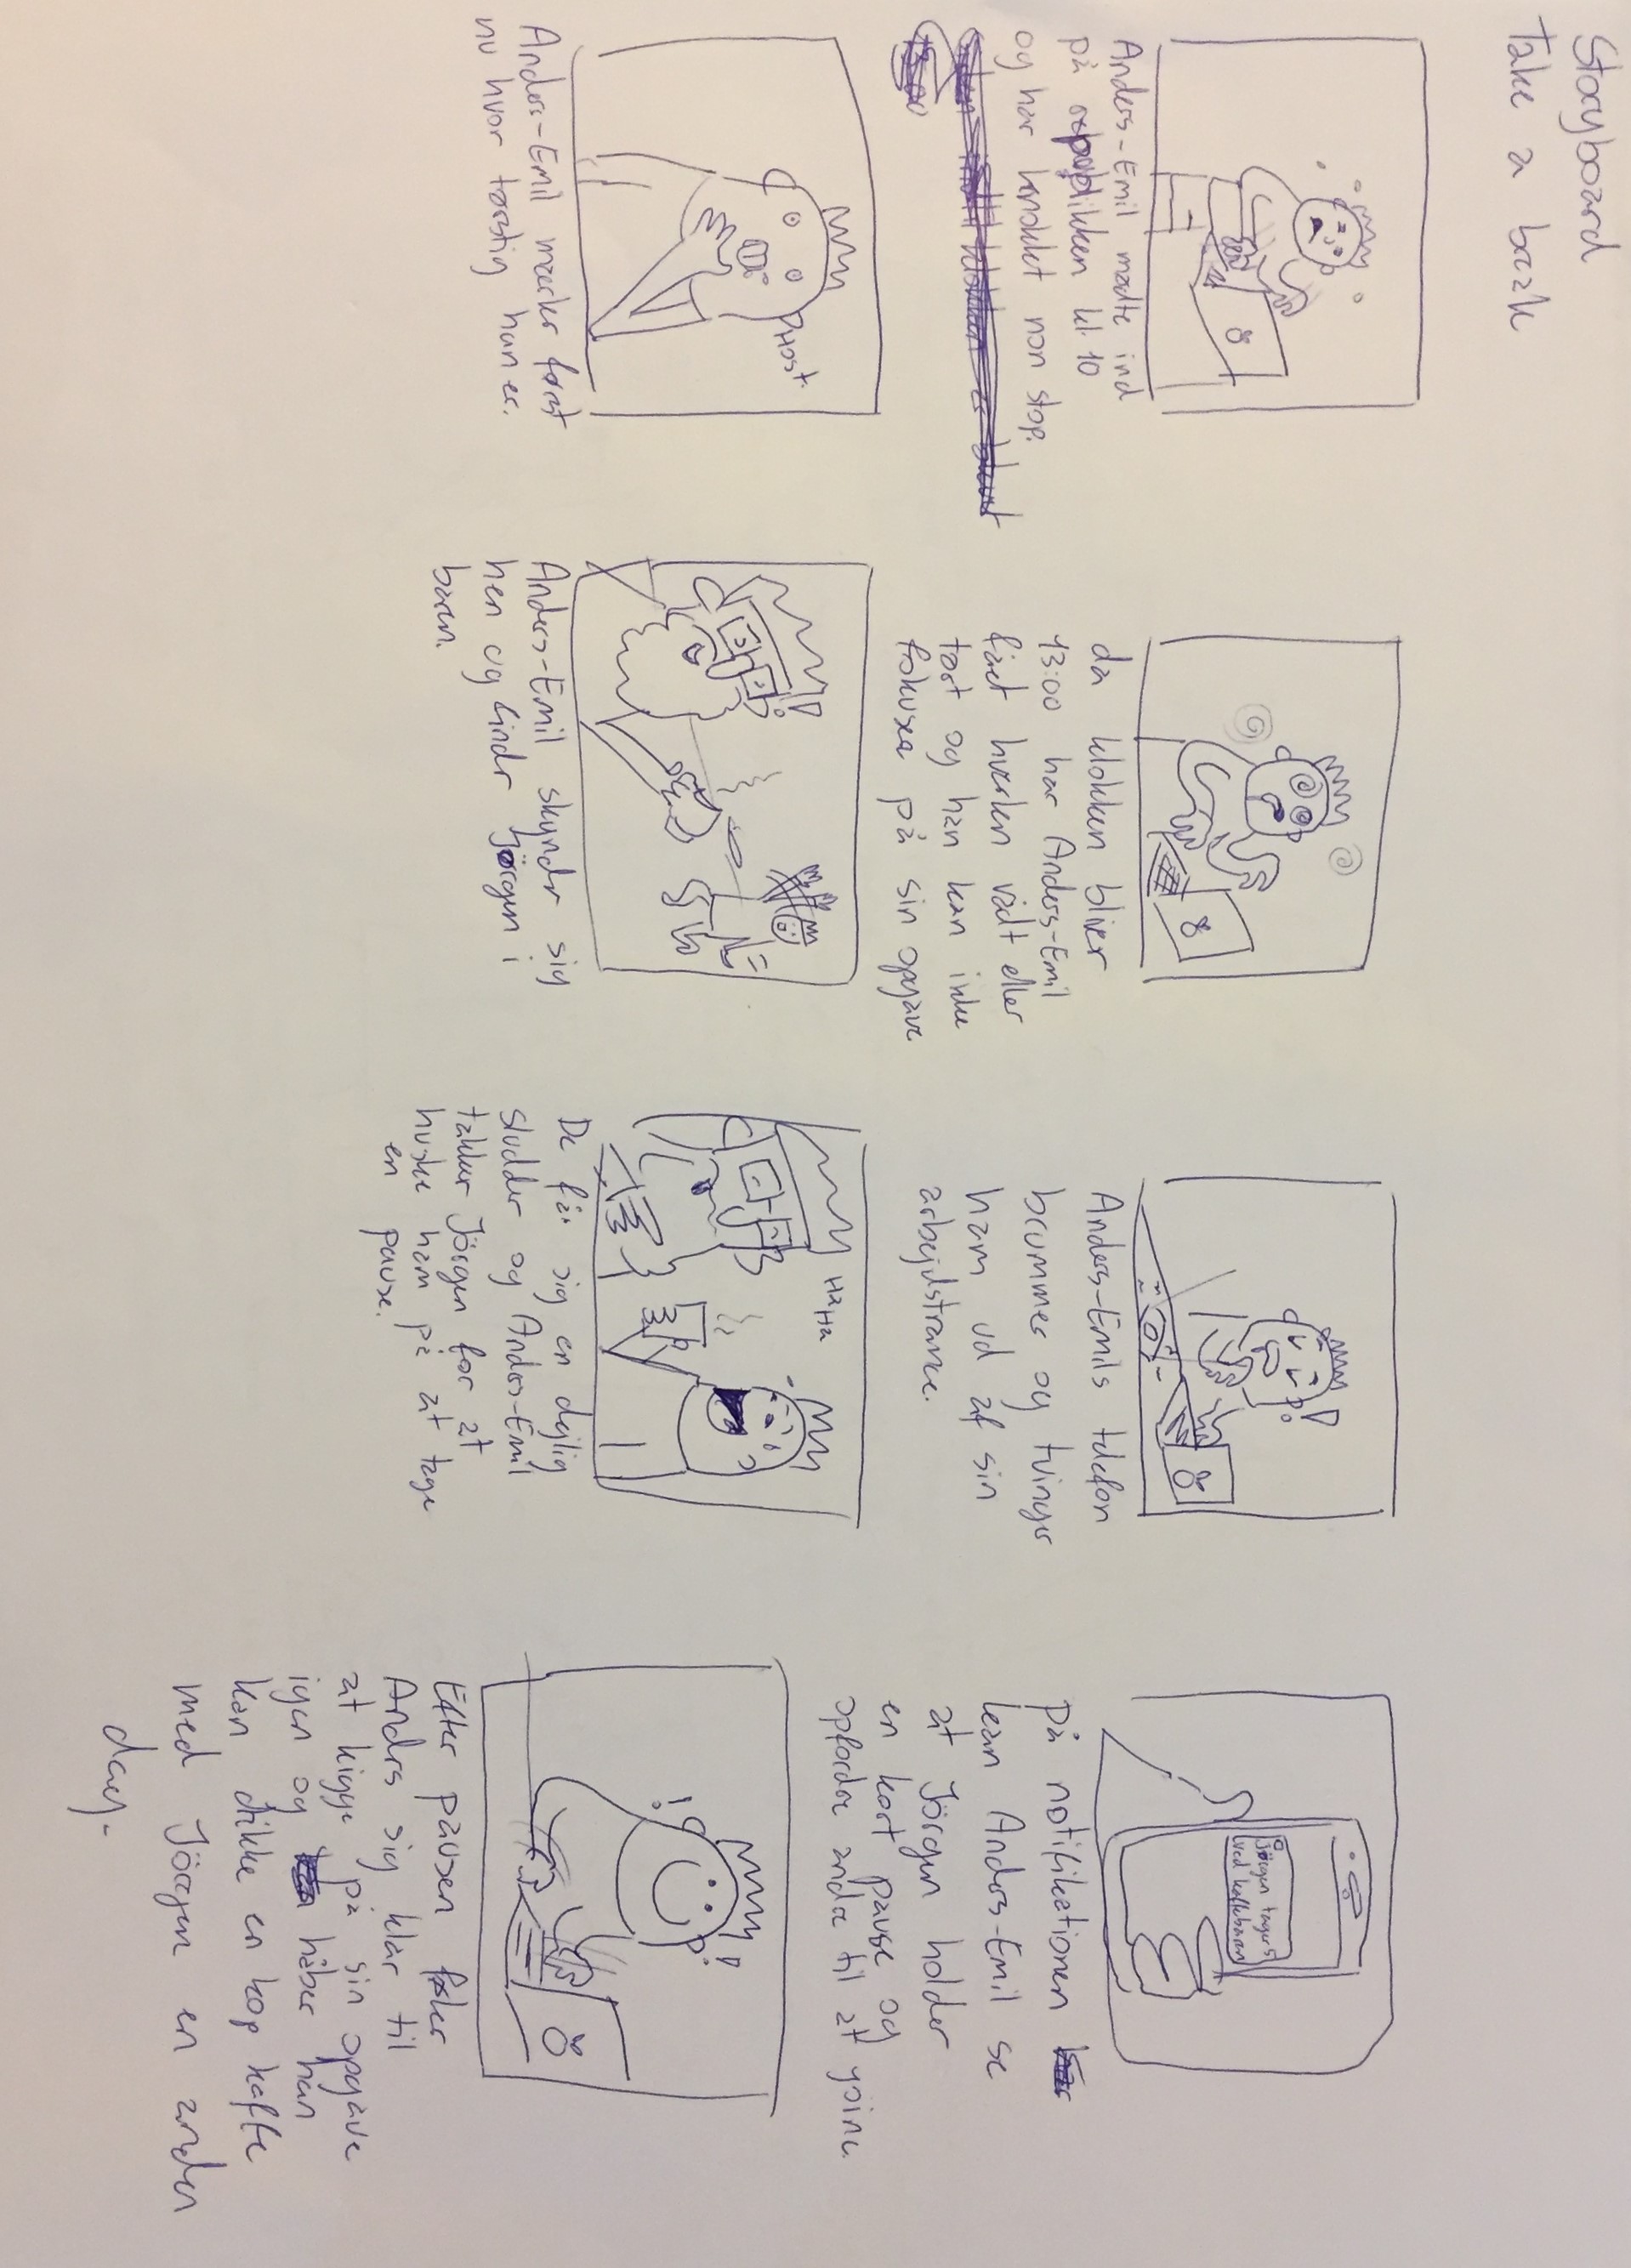 Storyboard
Take a break
Anders-Emil mødte ind
på republikken kl. 10
og har knoklet non stop.
da klokken bliver
13:00 har Anders-Emil
fået hverken vådt eller
tørt og han kan ikke
fokusere på sin opgave
Anders-Emils telefon
brummer og tvinger
ham ud af sin
arbejdstrance.
Jørgen tager 5
ved kaffebaren
på notifikationen
kan Anders-Emil se
at Jörgen holder
en kort pause og
opfordre andre til at joine.
Host
Anders-Emil mærker først
nu hvor tørstig han er.
Anders-Emil skynder sig
hen og finder Jørgen i
baren.
Ha Ha
De får sig en dejlig
sludder og Anders-Emil
takker Jörgen for at
huske ham på at tage
en pause.
Efter pausen føler
Anders sig klar til
at kigge på sin opgave
igen og håber han
kan drikke en kop kaffe
med Jörgen en anden
dag.